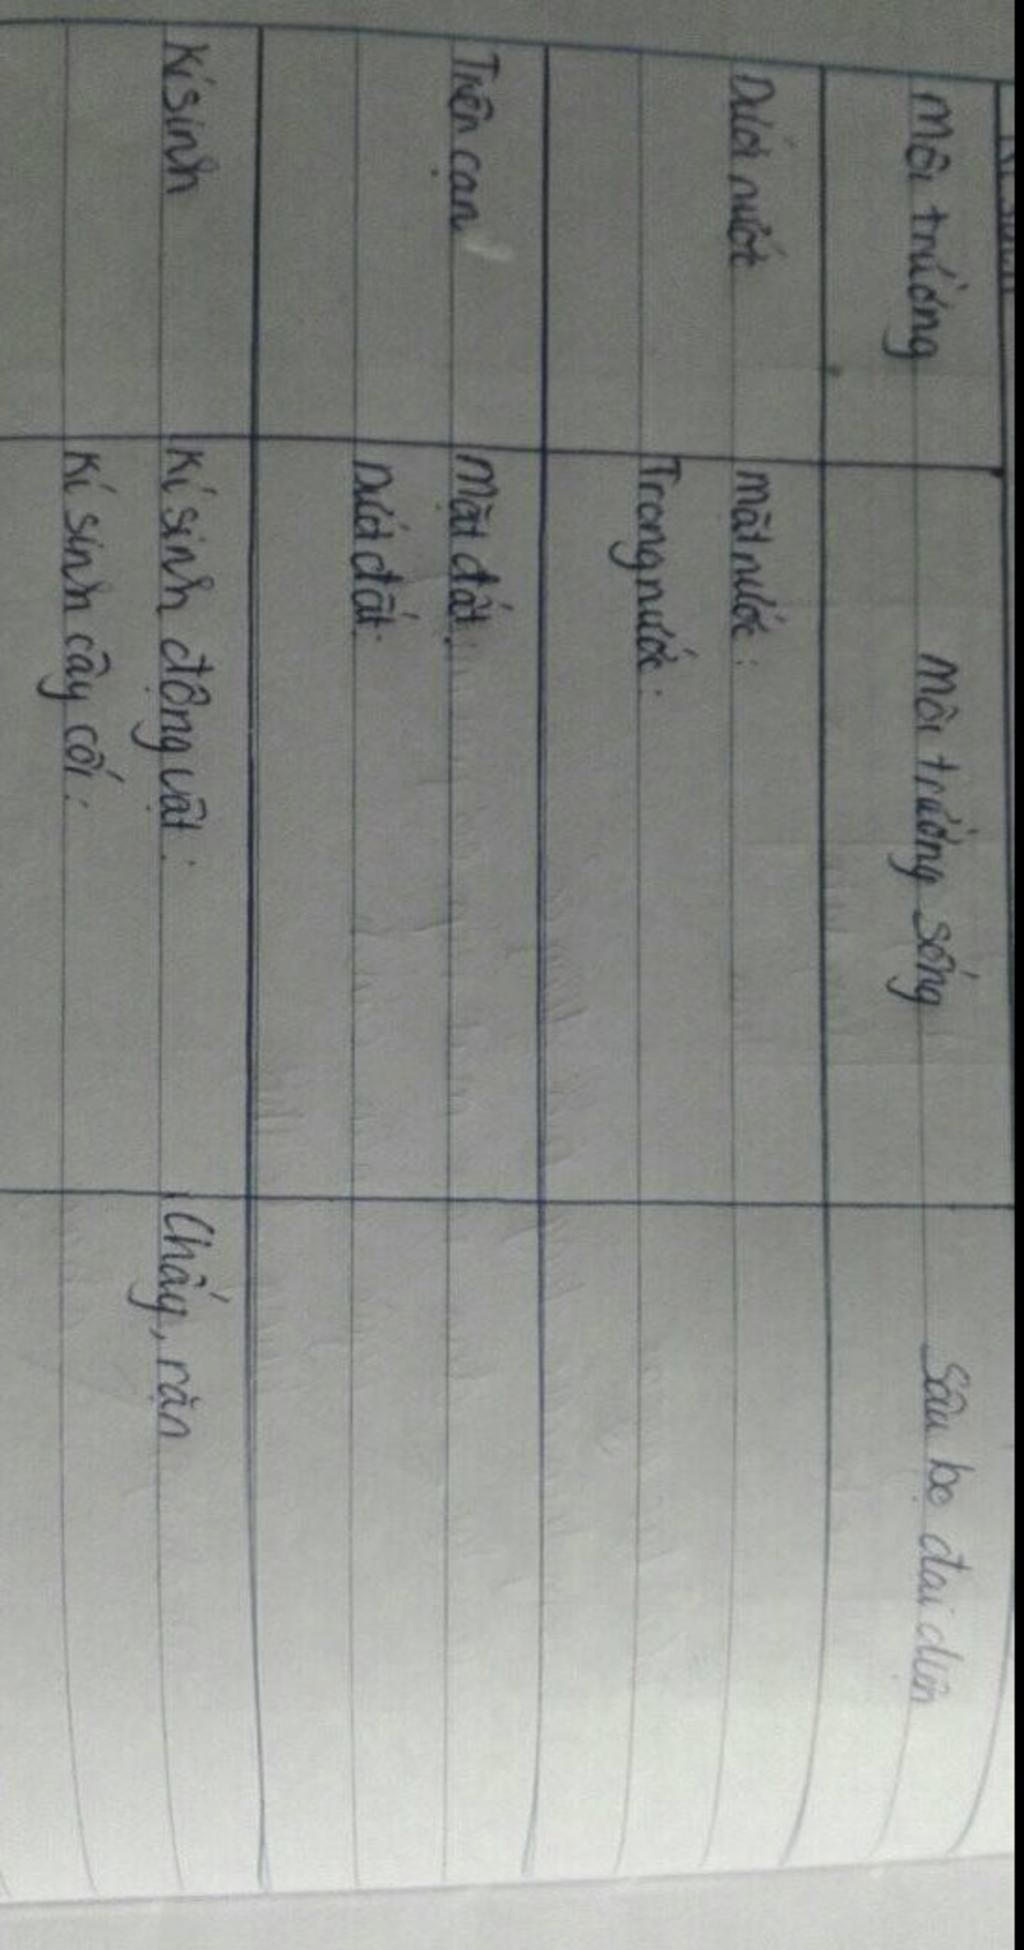 Môi trường Môi trường sống Sâu bọ đại diện
Dưới nước Mặt nước:
Trong nước:
Trên cạn Mặt đất:
Dưới đất:
Kí sinh Kí sinh động vật: Chấy, rận
Kí sinh cây cối: